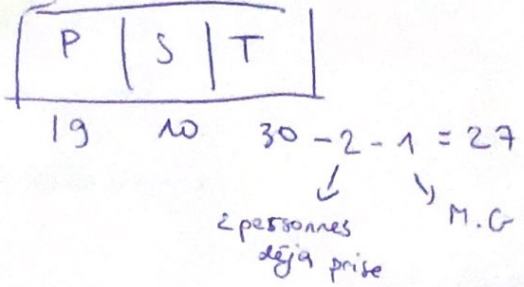 P | S | T
19 10 30 - 2 - 1 = 27
2 personnes
déjà prise
M.G